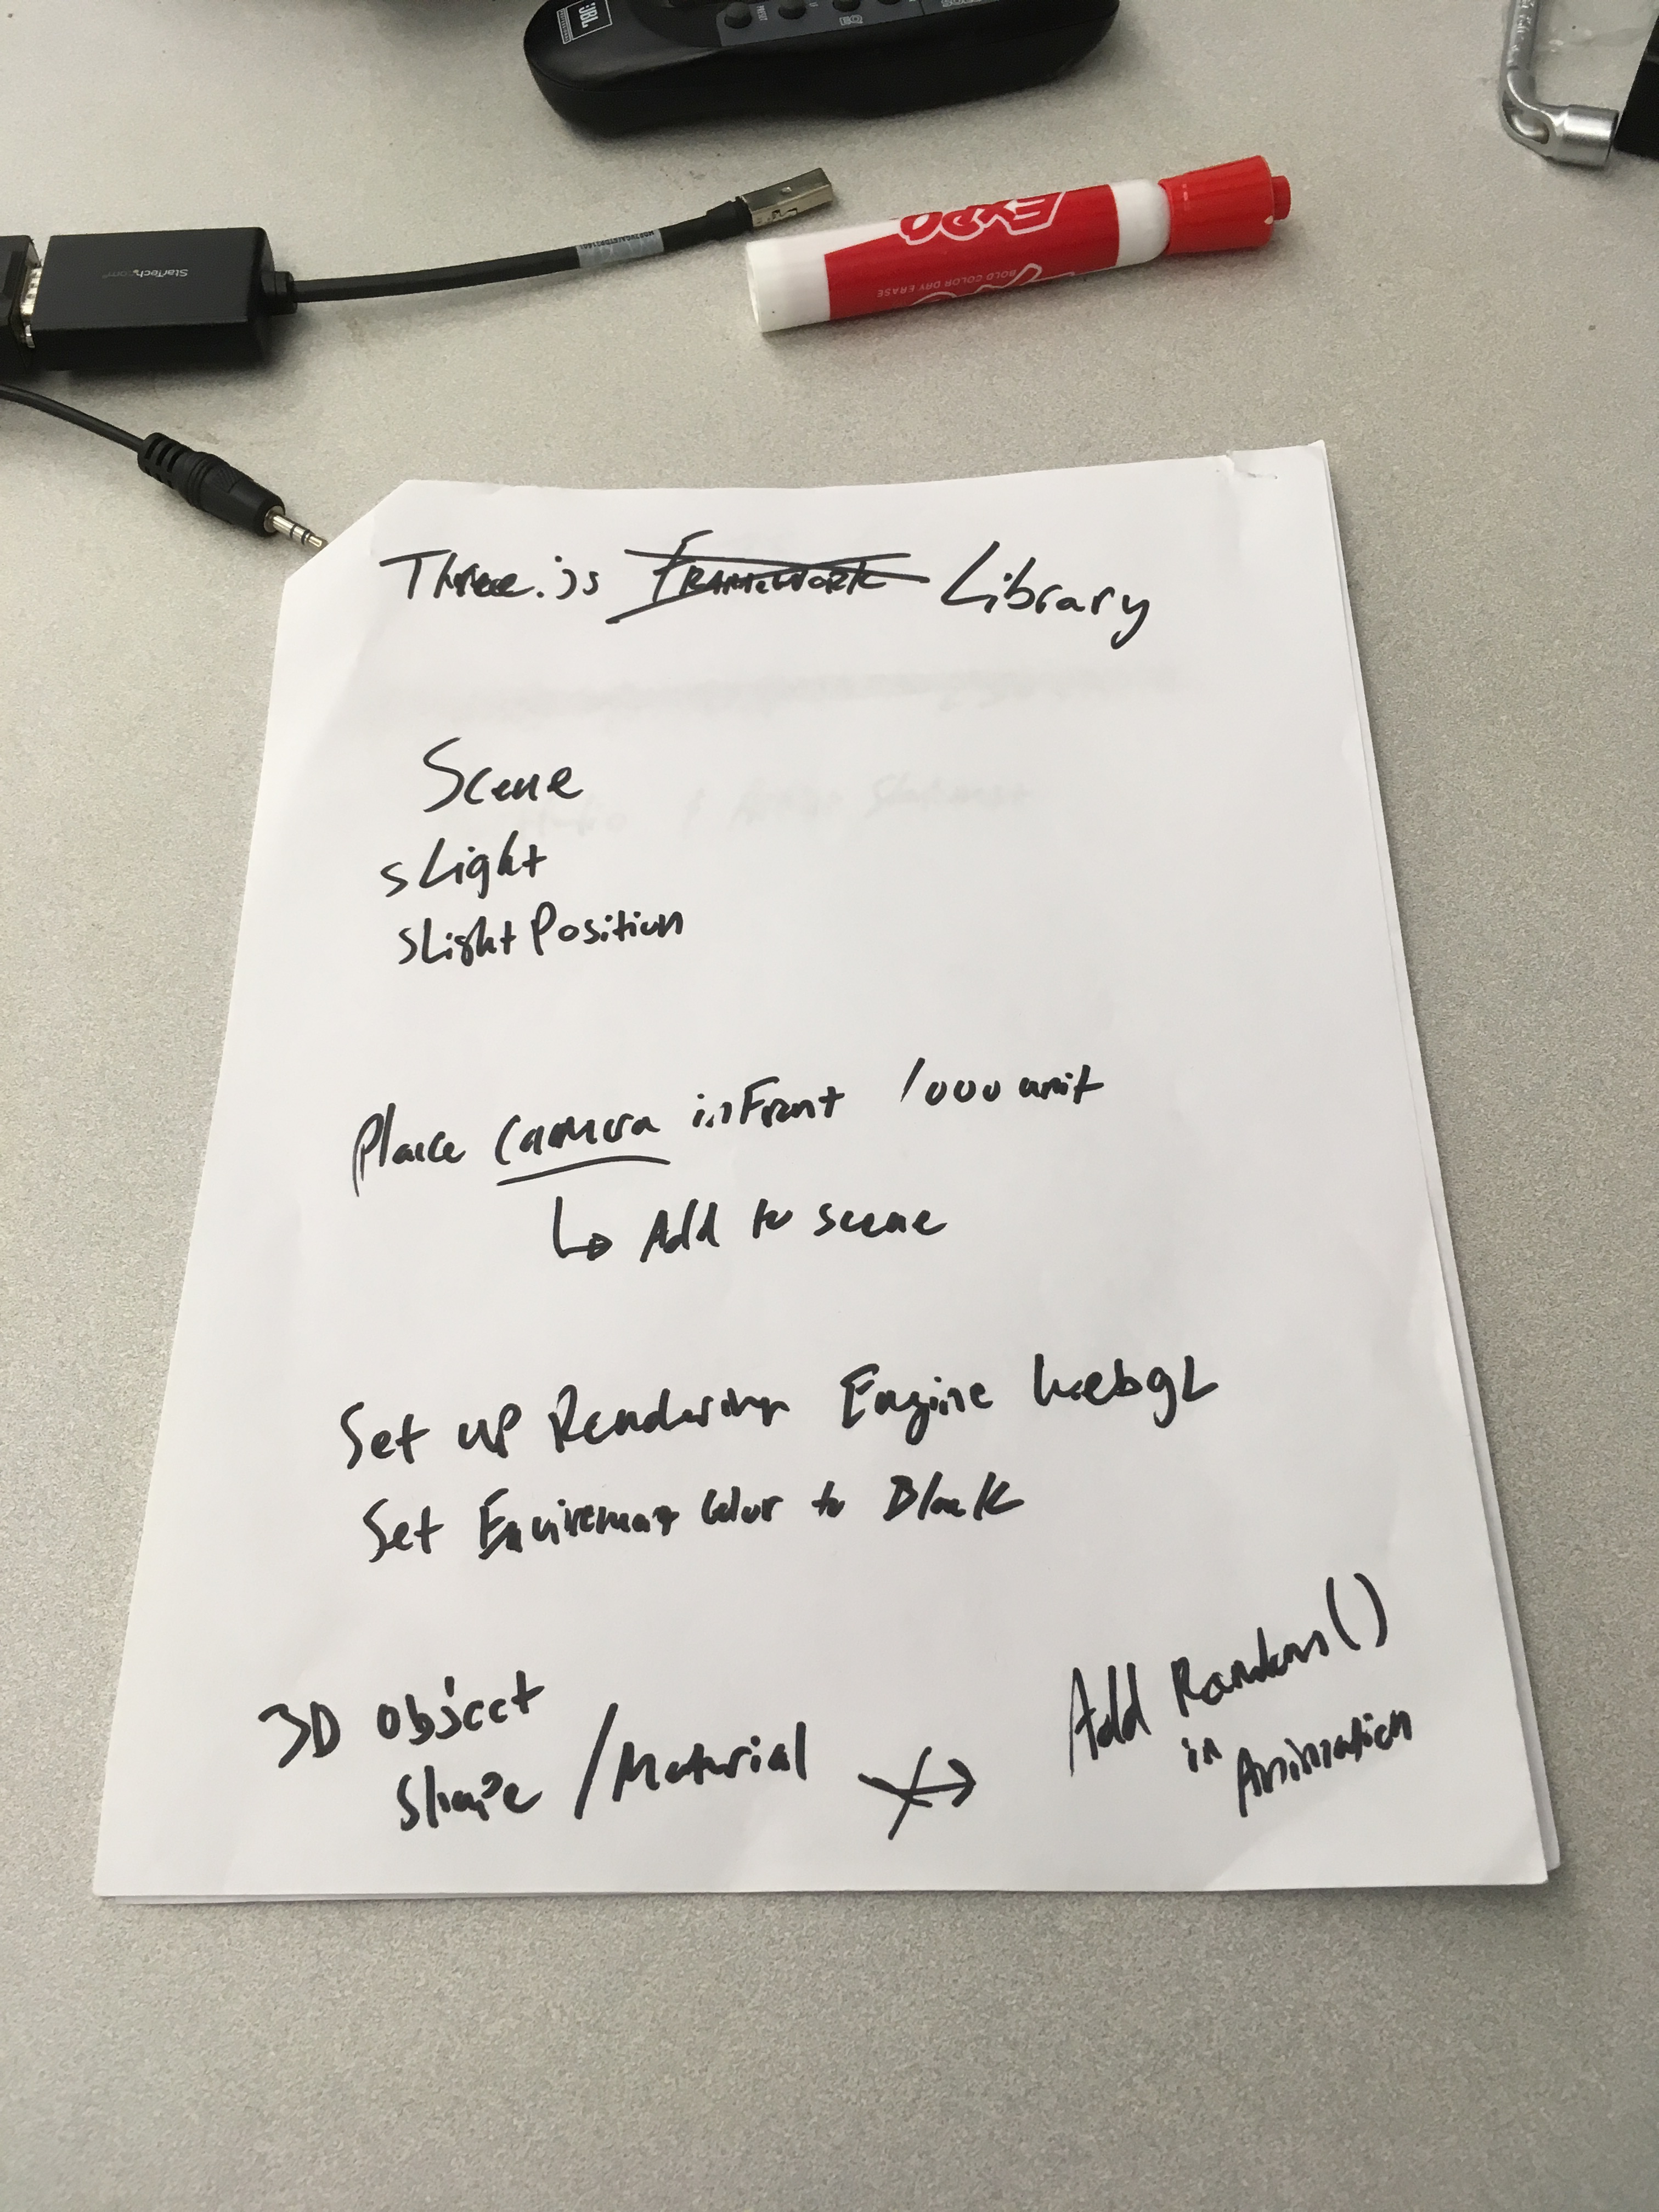 JBL
PRESET
EQ
StarTech.com
EXPO
BOLD COLOR DRY ERASE
Three.js FRAMEWORK Library
Scene
sLight
sLight Position
Place camera in Front 1000 unit
↳ Add to scene
Set up Rendering Engine WebgL
Set Enviremnt Color to Black
3D object
Shape / Material → Add Random()
in Animation